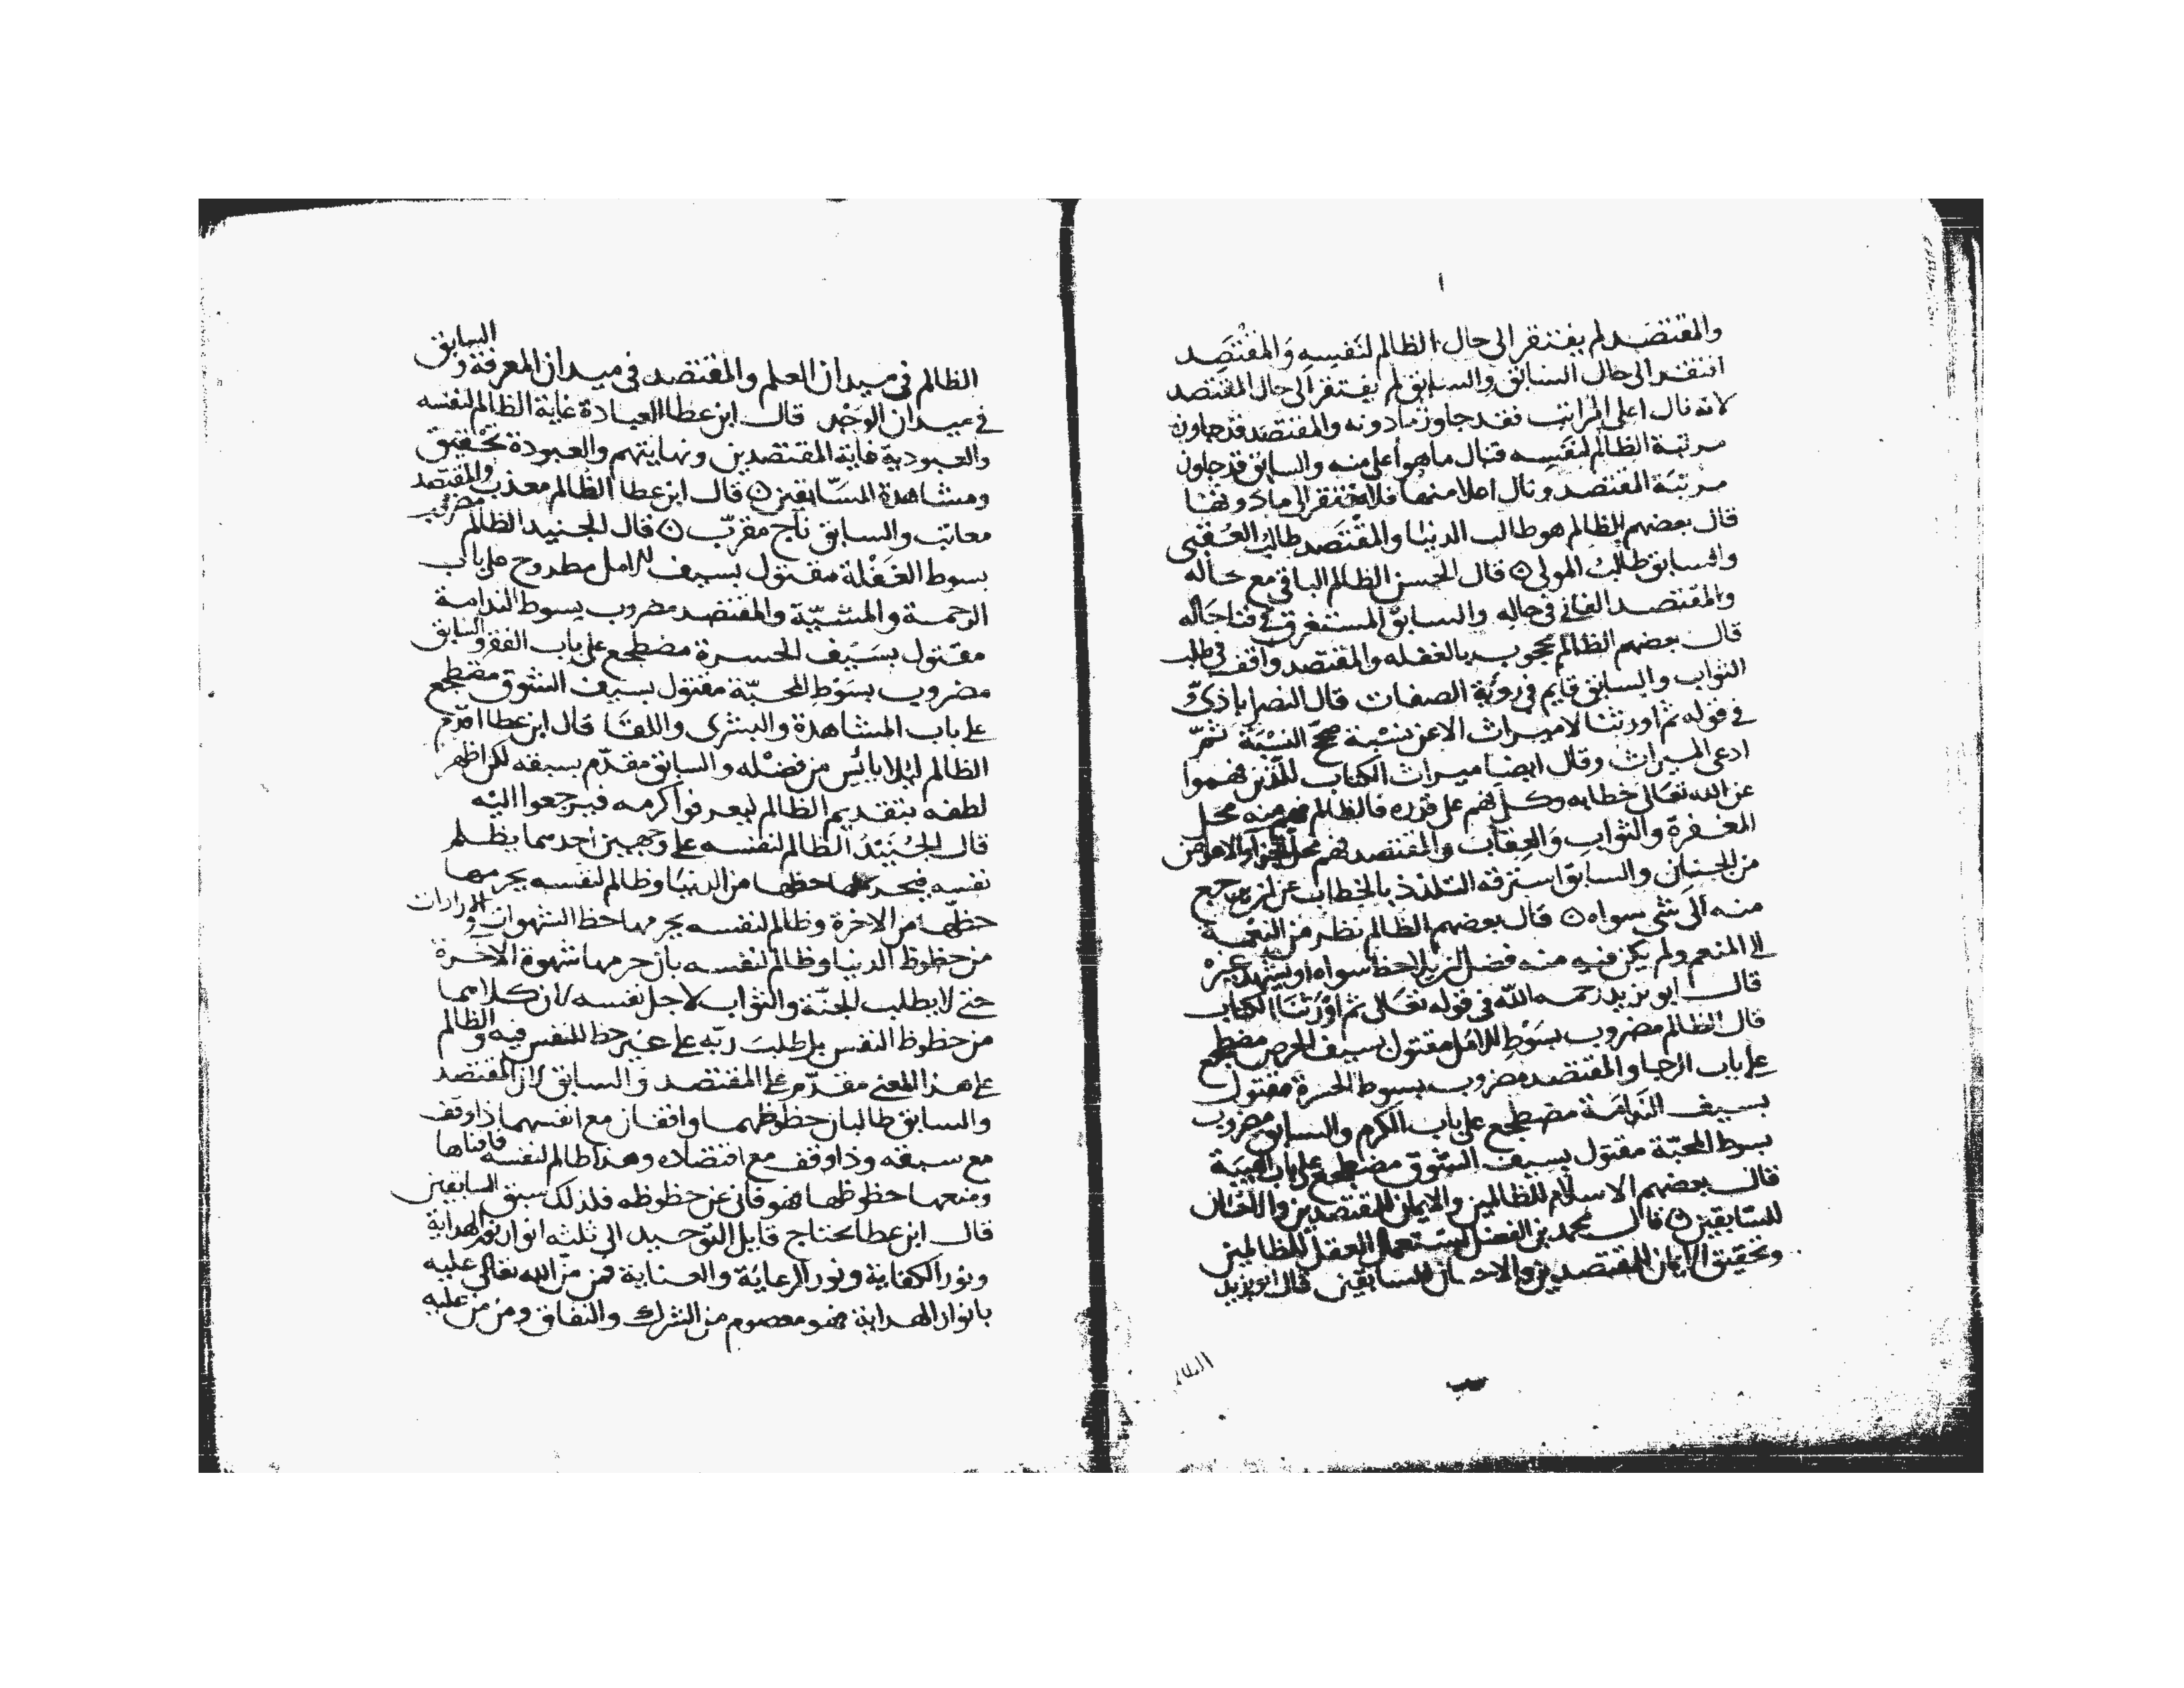 والمقتصد لم يفتقر الى حال الظالم لنفسه والمقتصد
افتقد الى حال السابق والسابق لم يفتقر الى حال المقتصد
لانه نال اعلى المراتب فقد جاوز مادونه والمقتصد قد جاوز
مرتبة الظالم لنفسه فنال ماهو أعلى منه والسابق قد جاوز
مرتبة المقتصد ونال اعلا منها فلا يفتقر الى مادونها
قال بعضهم الظالم هو طالب الدنيا والمقتصد طالب العقبى
والسابق طالب المولى ن قال الحسن الظالم الباقي مع حاله
والمقتصد الفاني في حاله والسابق المستغرق في فنا حاله
قال بعضهم الظالم محجوب بالغفله والمقتصد واقف في طلب
الثواب والسابق قايم في رؤية الصفات قال النصراباذي
في قوله ثم اورثنا لا ميراث الا عن نسبة صحح النسبة ثم
ادعى الميراث وقال ايضا ميراث الكتاب للذين فهموا
عن الله تعالى خطابه وكل فهم على قدره فالظالم فهم منه محل
المغفرة والثواب والعقاب والمقتصد فهم محل الجزا والاعواض
من الجنان والسابق استرقه التلذذ بالخطاب عن ان يرجع
منه الى شي سواه ن قال بعضهم الظالم نظر من النعمة
الى المنعم ولم يكن فيه منه فضل ان يلاحظ سواه او يشهد غيره
قال ابو يزيد رحمه الله في قوله تعالى ثم اورثنا الكتاب
قال الظالم مضروب بسوط الامل مقتول بسيف الحرص مضطجع
على باب الرجا والمقتصد مضروب بسوط الحسرة مقتول
بسيف الندامة مضطجع على باب الكرم والسابق مضروب
بسوط المحبة مقتول بسيف الشوق مضطجع على باب الهيبة
قال بعضهم الاسلام للظالمين والايمان للمقتصدين والاحسان
للسابقين ن قال محمد بن الفضل استعمال العقل للظالمين
وتحقيق الايمان للمقتصدين والاحسان للسابقين قال ابو يزيد
الظالم
الظالم في ميدان العلم والمقتصد في ميدان المعرفة والسابق
في ميدان الوجد قال ابن عطا العبادة غاية الظالم لنفسه
والعبودية غاية المقتصدين ونهايتهم والعبودة تحقيق
ومشاهدة السابقين ن قال ابن عطا الظالم معذب والمقتصد
معاتب والسابق ناج مقرب ن قال الجنيد الظالم مضروب
بسوط الغفلة مقتول بسيف الامل مطروح على باب
الرحمة والمشية والمقتصد مضروب بسوط الندامة
مقتول بسيف الحسرة مضطجع على باب العفو والسابق
مضروب بسوط المحبة مقتول بسيف الشوق مضطجع
على باب المشاهدة والبشرى واللقا قال ابن عطا
الظالم ليلا يائس من فضله والسابق مقدم بسبقه لكن اظهر
لطفه بتقديم الظالم ليعرفوا كرمه فيرجعوا اليه
قال الجنيد الظالم لنفسه على وجهين احدهما يظلم
نفسه فيحرمها حظها من الدنيا وظالم لنفسه يحرمها
حظها من الاخرة وظالم لنفسه يحرمها حظ الشهوات والارادات
من حظوظ الدنيا وظالم لنفسه بان حرمها شهوة الآخرة
حتى لا يطلب الجنة والثواب لاجل نفسه لان كلاهما
من حظوظ النفس بل طلب ربه على غير حظ للنفس فيه والظالم
على هذا المعنى مقدم على المقتصد والسابق لان المقتصد
والسابق طالبان حظوظهما واقفان مع انفسهما ذا وقف
مع سبقه وذا وقف مع اقتصاده وهذا ظالم لنفسه فافناها
ومنعها حظوظها فهو فاني عن حظوظه فلذلك سبق السابقين
قال ابن عطا يحتاج قايل التوحيد الى ثلثه انوار نور الهداية
ونور الكفاية ونور الرعاية والعناية فمن من الله تعالى عليه
بانوار الهداية فهو معصوم من الشرك والنفاق ومن من عليه